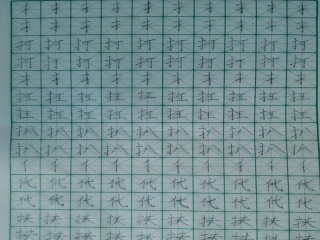 扌扌扌扌扌扌扌扌扌扌
扌扌扌扌扌扌扌扌扌扌
打打打打打打打打打打
打打打打打打打打打打
扌扌扌扌扌扌扌扌扌扌
扒扒扒扒扒扒扒扒扒扒
扒扒扒扒扒扒扒扒扒扒
亻亻亻亻亻亻亻亻亻亻
代代代代代代代代代代
代代代代代代代代代代
扶扶扶扶扶扶扶扶扶扶
扶扶扶扶扶扶扶扶扶扶